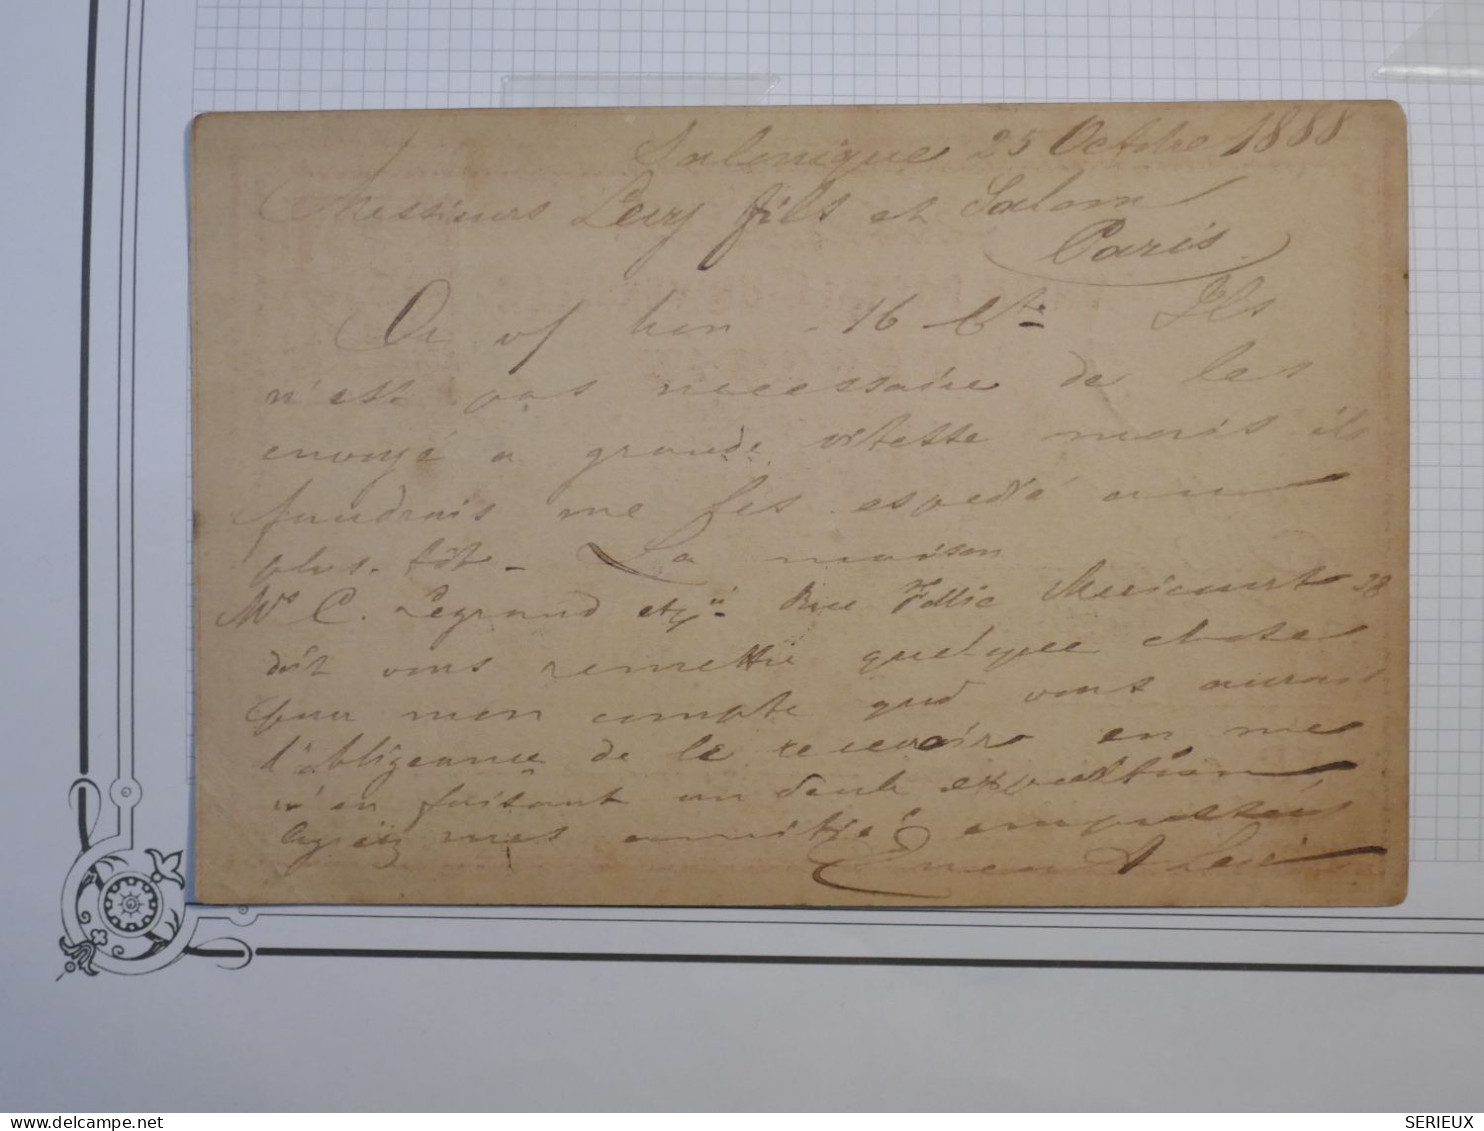 Salonique 25 Octbre 1888
Messieurs Levy fils et Salom
Paris
16 Ils
n'est pas necessaire de les
envoyé a grande vitesse mais il
faudrais me les espedié au
plus tôt - La maison
Mrs C. Legrand et Cie Rue Follie Mericourt 28
doit vous remettre quelque choses
pour mon compte que vous aurai
l'obligeance de le recevoir en me
n'en faisant un seule expedition
mes amitié empressées
SERIEUX
www.delcampe.net